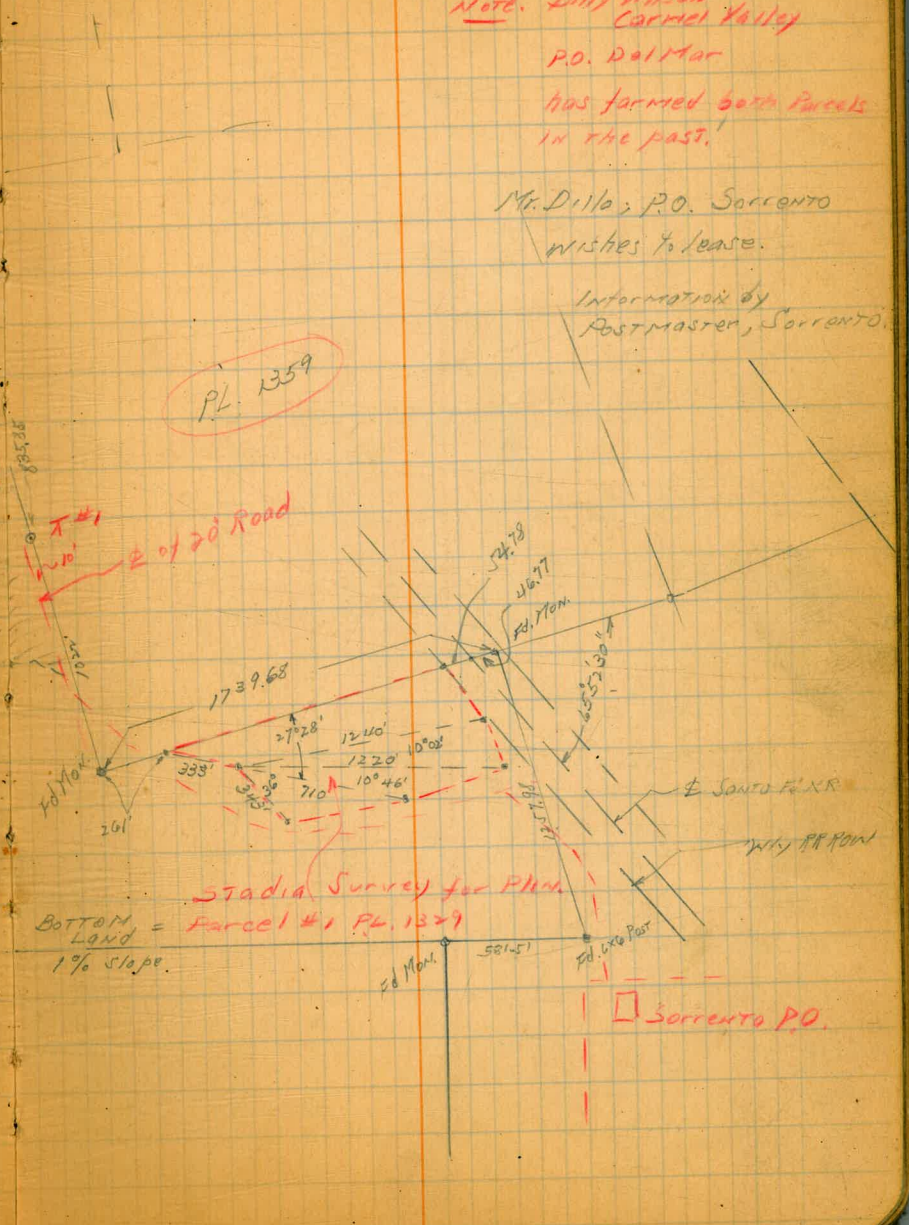 Note.
Carmel Valley
P.O. Del Mar
has farmed both Parcels
in the past.
Mr. Dillo; P.O. Sorrento
wishes to lease.
Information by
Postmaster, Sorrento.
P.L. 1359
835.35
π #1
~10'
℄ of 20' Road
54.78
46.77
Fd. Mon.
65°52'30"
1739.68
27°28'
1240'
10°02'
1220'
333'
10°46'
710'
Fd Mon.
261'
℄ Santa Fe RR
Wly RR ROW
Stadia Survey for Plan.
Parcel #1 P.L. 1329
Bottom
Land =
1% slope.
Fd Mon.
581.51
Fd. 6x6 Post
Sorrento P.O.